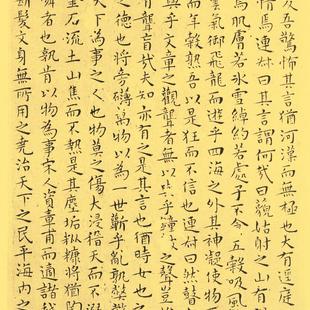 反吾驚怖其言猶河漢而無極也大有逕庭
情焉連叔曰其言謂何哉曰藐姑射之山有
焉肌膚若冰雪綽約若處子不食五穀吸風
雲氣御飛龍而遊乎四海之外其神凝使物
而年穀熟吾以是狂而不信也連叔曰然瞽
與乎文章之觀聾者無以與乎鐘鼓之聲豈
有聾盲哉夫知亦有之是其言也猶時女也
之德也將旁礡萬物以為一世蘄乎亂孰弊
天下為事之人也物莫之傷大浸稽天而不溺
金石流土山焦而不熱是其塵垢粃糠將猶陶
舜者也孰肯以物為事宋人資章甫而適諸越
斷髮文身無所用之堯治天下之民平海內之